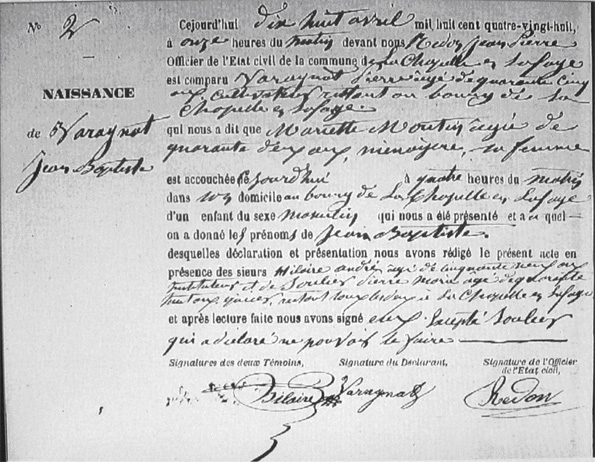 No 2
NAISSANCE
de Varagnat
Jean Baptiste
Cejourd'hui dix huit avril mil huit cent quatre-vingt-huit,
à onze heures du matin devant nous Redon Jean Pierre
Officier de l'Etat civil de la commune de La Chapelle en Lafaye
est comparu Varagnat Pierre âgé de quarante cinq
ans, cultivateur résidant au bourg de La
Chapelle en Lafaye
qui nous a dit que Mariette Moulin agée de
quarante deux ans, ménagère, sa femme
est accouchée cejourd'hui à quatre heures du matin
dans son domicile au bourg de La Chapelle en Lafaye
d'un enfant du sexe masculin qui nous a été présenté et auquel
on a donné les prénoms de Jean Baptiste
desquelles déclaration et présentation nous avons rédigé le présent acte en
présence des sieurs Hilaire andré, agé de cinquante neuf ans
instituteur et de Soulier Pierre Marie agé de quarante
huit ans, résidant tous les deux à La Chapelle en Lafaye
et après lecture faite nous avons signé eux excepté Soulier
qui a déclaré ne pouvoir le faire
Signatures des deux Témoins, Signature du Déclarant, Signature de l'Officier
de l'Etat civil,
Hilaire Varagnat Redon